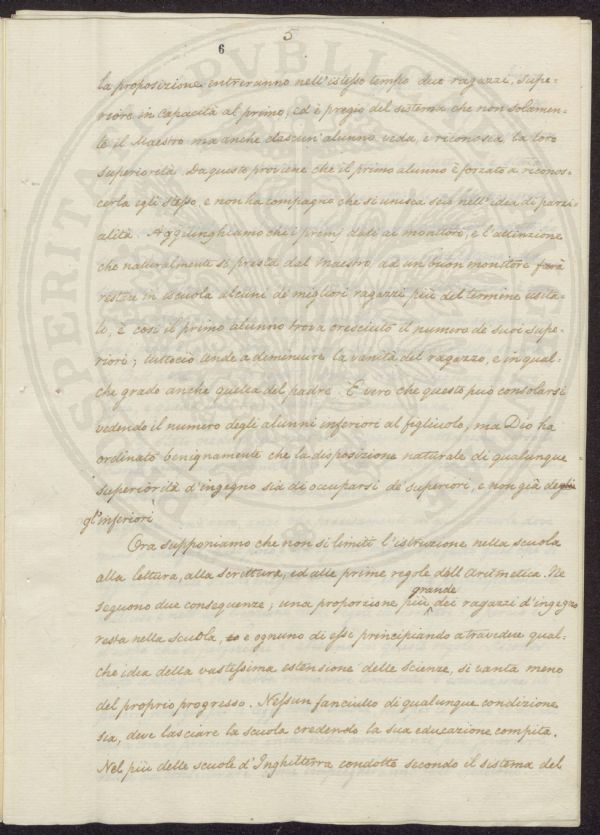 5
6
la proposizione entreranno nell'istesso tempo due ragazzi, supe=
riore in capacità al primo, ed è pregio del sistema che non solamen=
te il Maestro ma anche ciascun' alunno veda, e riconosca la loro
superiorità. Da questo proviene che il primo alunno è forzato a ricono=
scerla egli stesso, e non ha compagno che si unisca seco nell'idea di parzi=
alità. Aggiunghiamo che i premj dati ai monitori, e l'attenzione
che naturalmente si presta dal maestro ad un buon monitore farà
restare in iscuola alcuni de' migliori ragazzi più del termine usita=
to, e così il primo alunno trova cresciuto il numero de' suoi supe=
riori; tuttociò tende a diminuire la vanità del ragazzo, e in qual=
che grado anche quella del padre. È vero che questo può consolarsi
vedendo il numero degli alunni inferiori al figliuolo, ma Dio ha
ordinato benignamente che la disposizione naturale di qualunque
superiorità d'ingegno sia di occuparsi de' superiori, e non già degli
gl'inferiori
Ora supponiamo che non si limiti l'istruzione nella scuola
alla lettura, alla scrittura, ed alle prime regole dell'Aritmetica. Ne
grande
seguono due conseguenze; una proporzione più dei ragazzi d'ingegno
resta nella scuola, e ognuno di esse principiando a travedere qual=
che idea della vastessima estensione delle Scienze, si vanta meno
del proprio progresso. Nessun fanciullo di qualunque condizione
sia, deve lasciare la scuola credendo la sua educazione compita.
Nel più delle scuole d'Inghilterra condotte secondo il sistema del